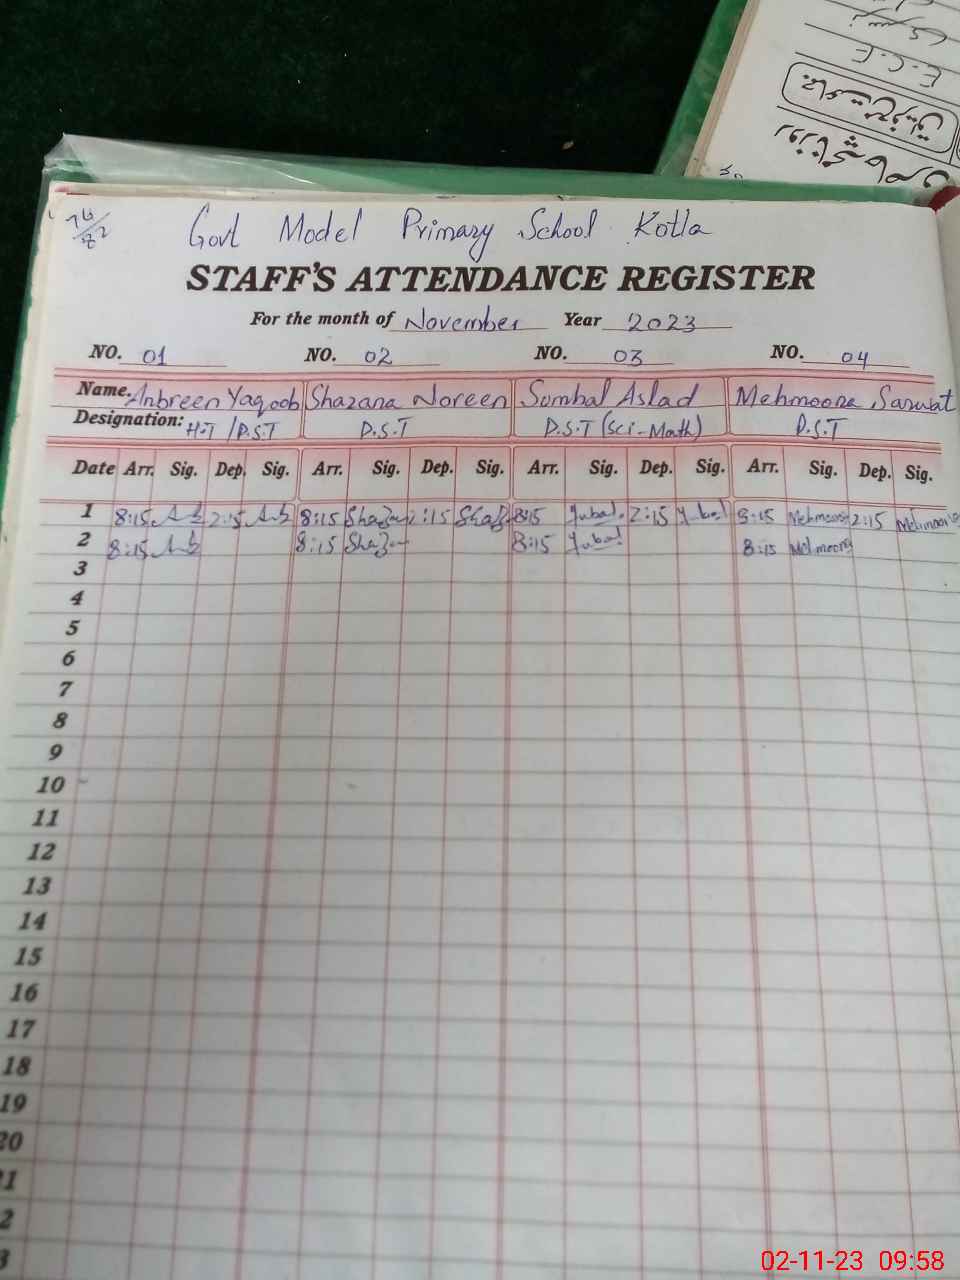 Govt Model Primary School Kotla
STAFF'S ATTENDANCE REGISTER
For the month of November Year 2023
NO. 01 NO. 02 NO. 03 NO. 04
Name: Anbreen Yaqoob Shazana Noreen Sumbal Aslad Mehmoona Sarwat
Designation: H.T / P.S.T P.S.T P.S.T (Sci-Math) P.S.T
Date Arr. Sig. Dep. Sig. Arr. Sig. Dep. Sig. Arr. Sig. Dep. Sig. Arr. Sig. Dep. Sig.
1 8:15 2:15 8:15 2:15 8:15 2:15 8:15 Mehmoona 2:15 Mehmoona
2 8:15 8:15 8:15 8:15 Mehmoona
3
4
5
6
7
8
9
10
11
12
13
14
15
16
17
18
19
20
E.C.E
02-11-23 09:58